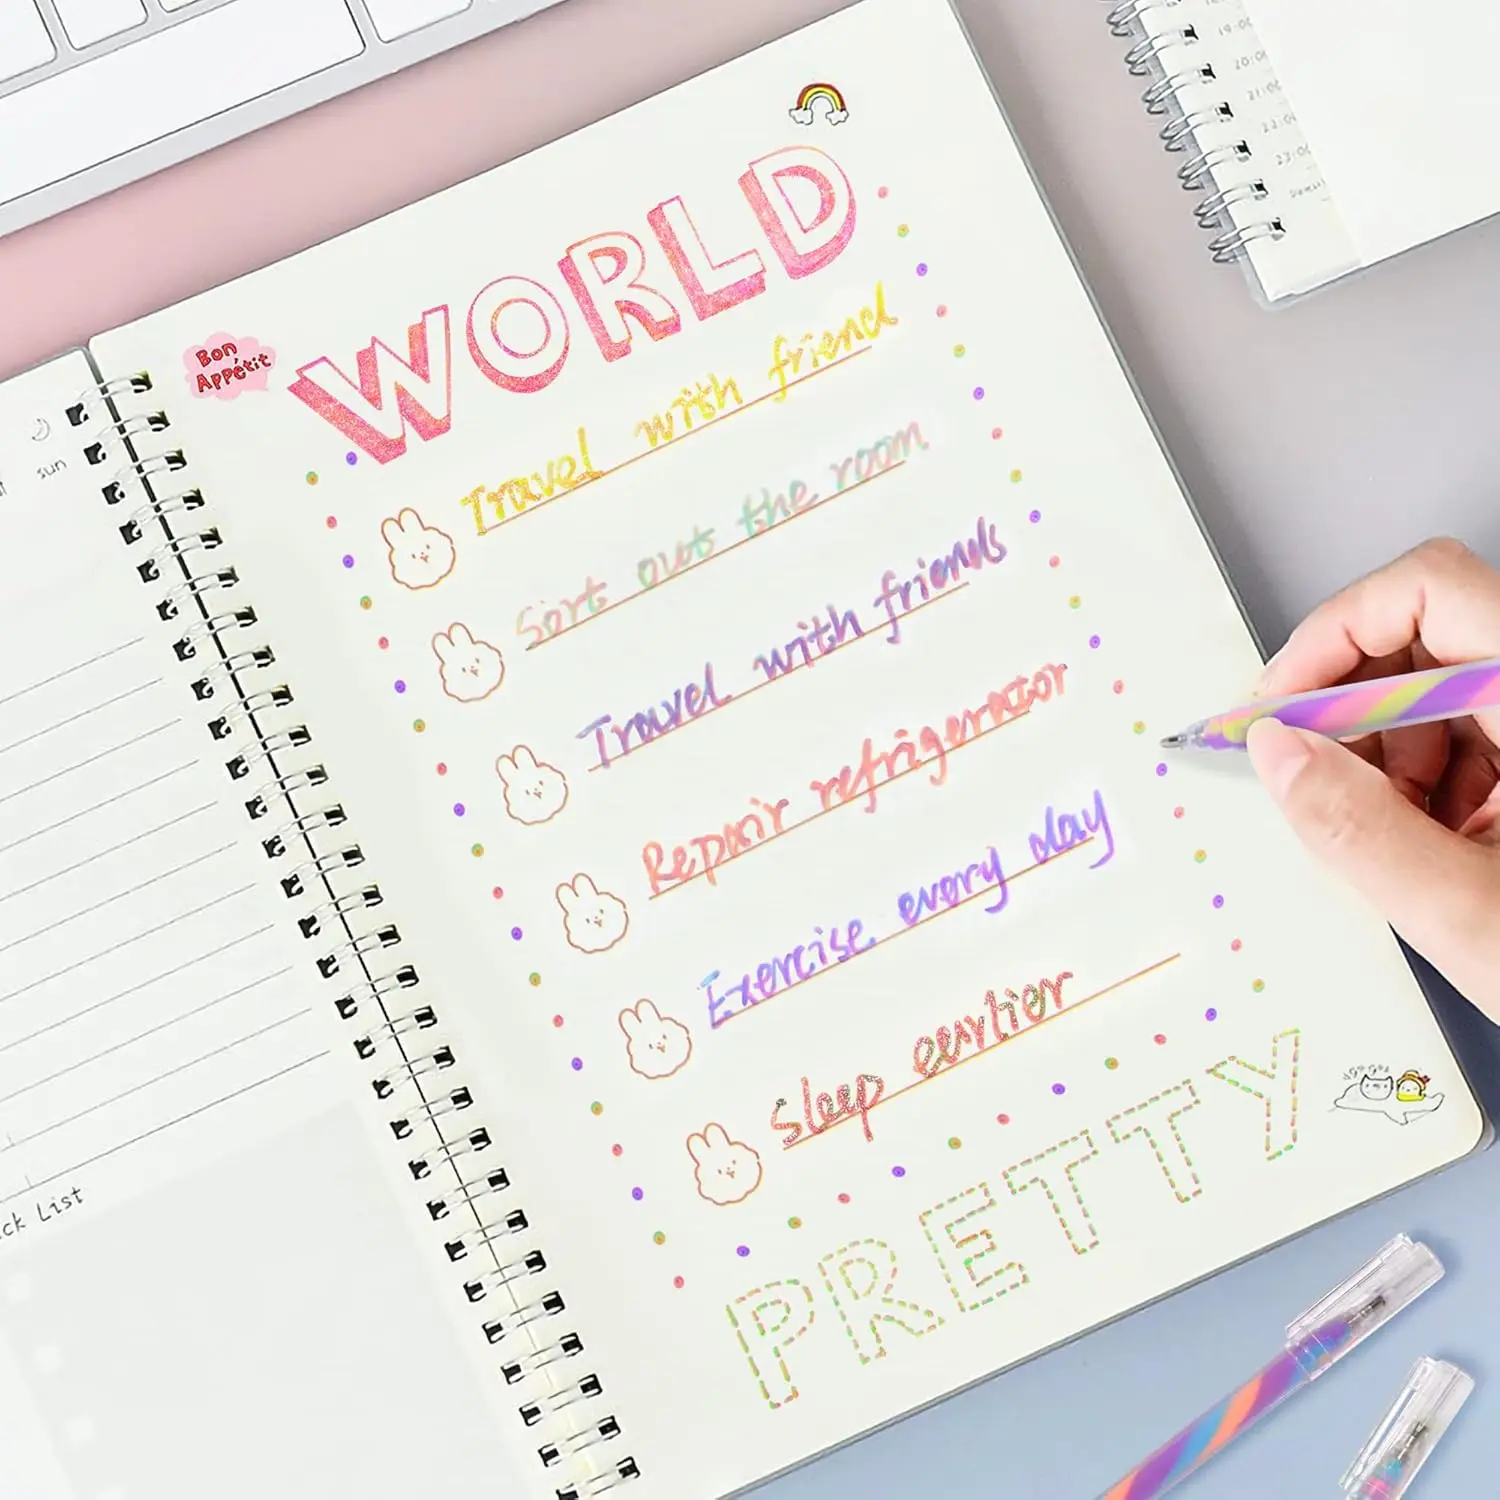 19:00
20:00
21:00
22:00
23:00
WORLD
Bon
Appétit
Travel with friend
Sort out the room
Travel with friends
Repair refrigerator
Exercise every day
Sleep earlier
PRETTY
sun
ck List